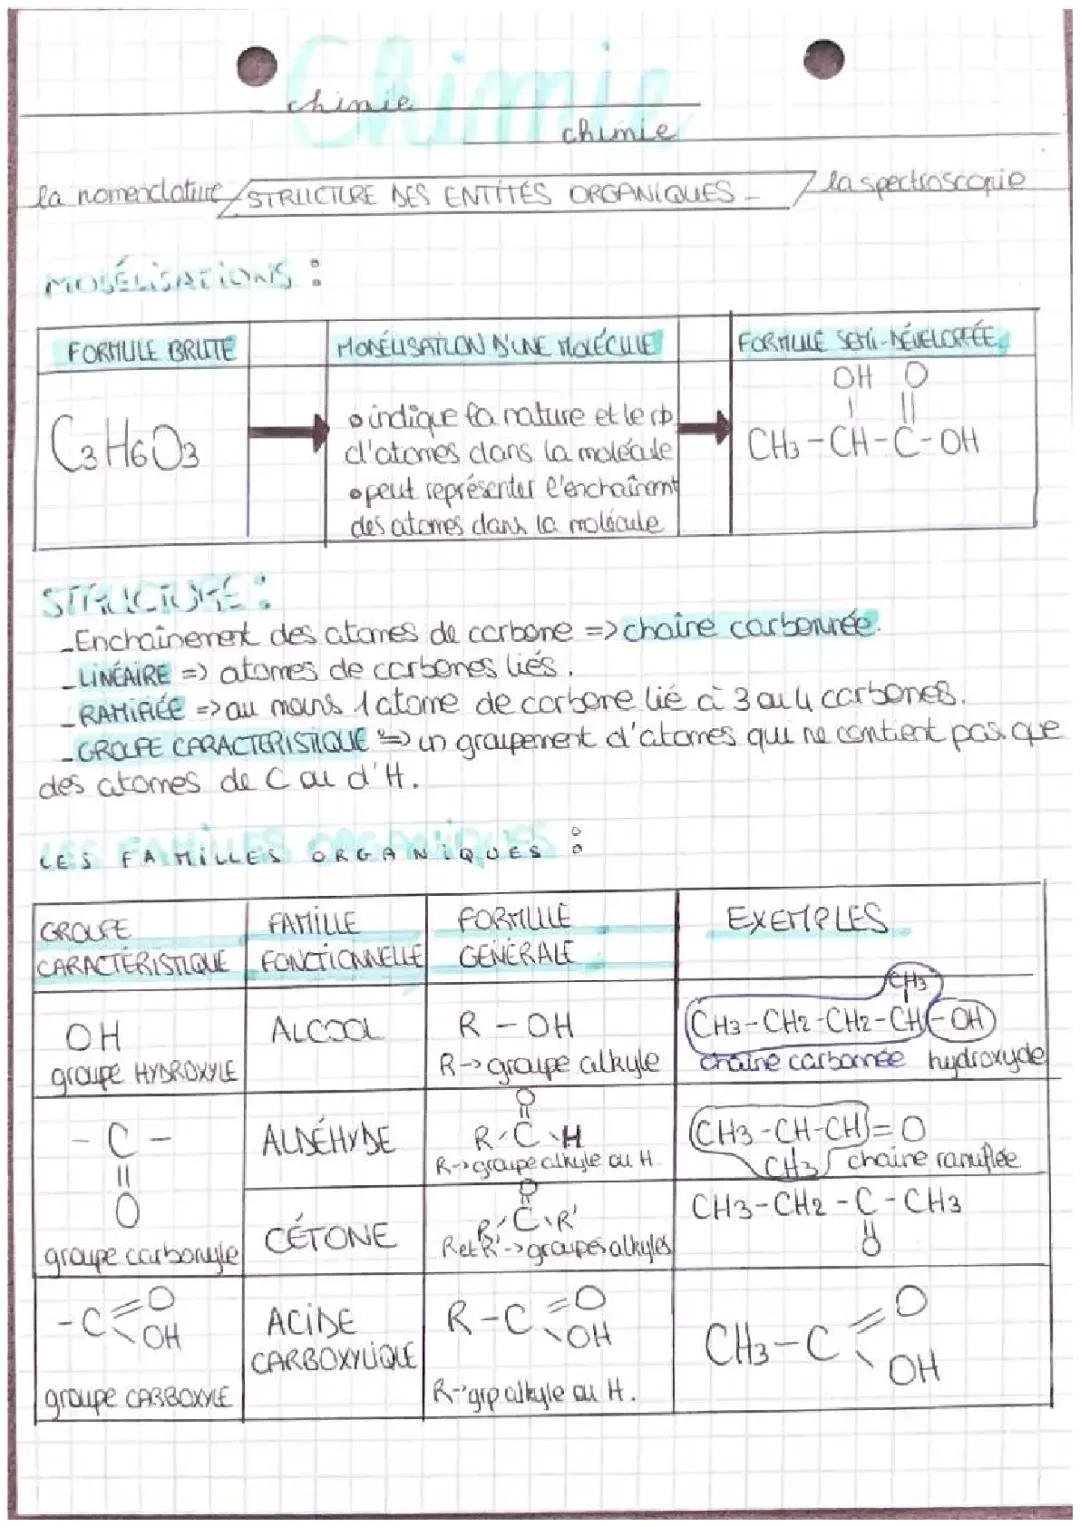 Chimie
chimie
chimie
la nomenclature
STRUCTURE DES ENTITÉS ORGANIQUES -
la spectroscopie
MODÉLISATIONS :
FORMULE BRUTE
MODÉLISATION D'UNE MOLÉCULE
FORMULE SEMI-DÉVELOPPÉE
C3H6O3
• indique la nature et le nb
d'atomes dans la molécule
• peut représenter l'enchaînemt
des atomes dans la molécule
OH O
CH3-CH-C-OH
STRUCTURE :
- Enchaînement des atomes de carbone => chaîne carbonnée.
- LINÉAIRE => atomes de carbones liés.
- RAMIFIÉE => au moins 1 atome de carbone lié à 3 ou 4 carbones.
- GROUPE CARACTERISTIQUE => un groupement d'atomes qui ne contient pas que
des atomes de C ou d'H.
LES FAMILLES ORGANIQUES :
GROUPE
CARACTÉRISTIQUE
FAMILLE
FONCTIONNELLE
FORMULE
GÉNÉRALE
EXEMPLES
OH
groupe HYDROXYLE
ALCOOL
R - OH
R -> groupe alkyle
CH3
CH3-CH2-CH2-CH-OH
chaîne carbonnée hydroxyde
- C -
||
O
groupe carbonyle
ALDÉHYDE
O
||
R-C-H
R -> groupe alkyle ou H.
CH3-CH-CH=O
CH3 chaîne ramifiée
CÉTONE
O
||
R-C-R'
R et R' -> groupes alkyles
CH3-CH2-C-CH3
||
O
-C=O
OH
groupe CARBOXYLE
ACIDE
CARBOXYLIQUE
R-C=O
OH
R -> grp alkyle ou H.
CH3-C=O
OH